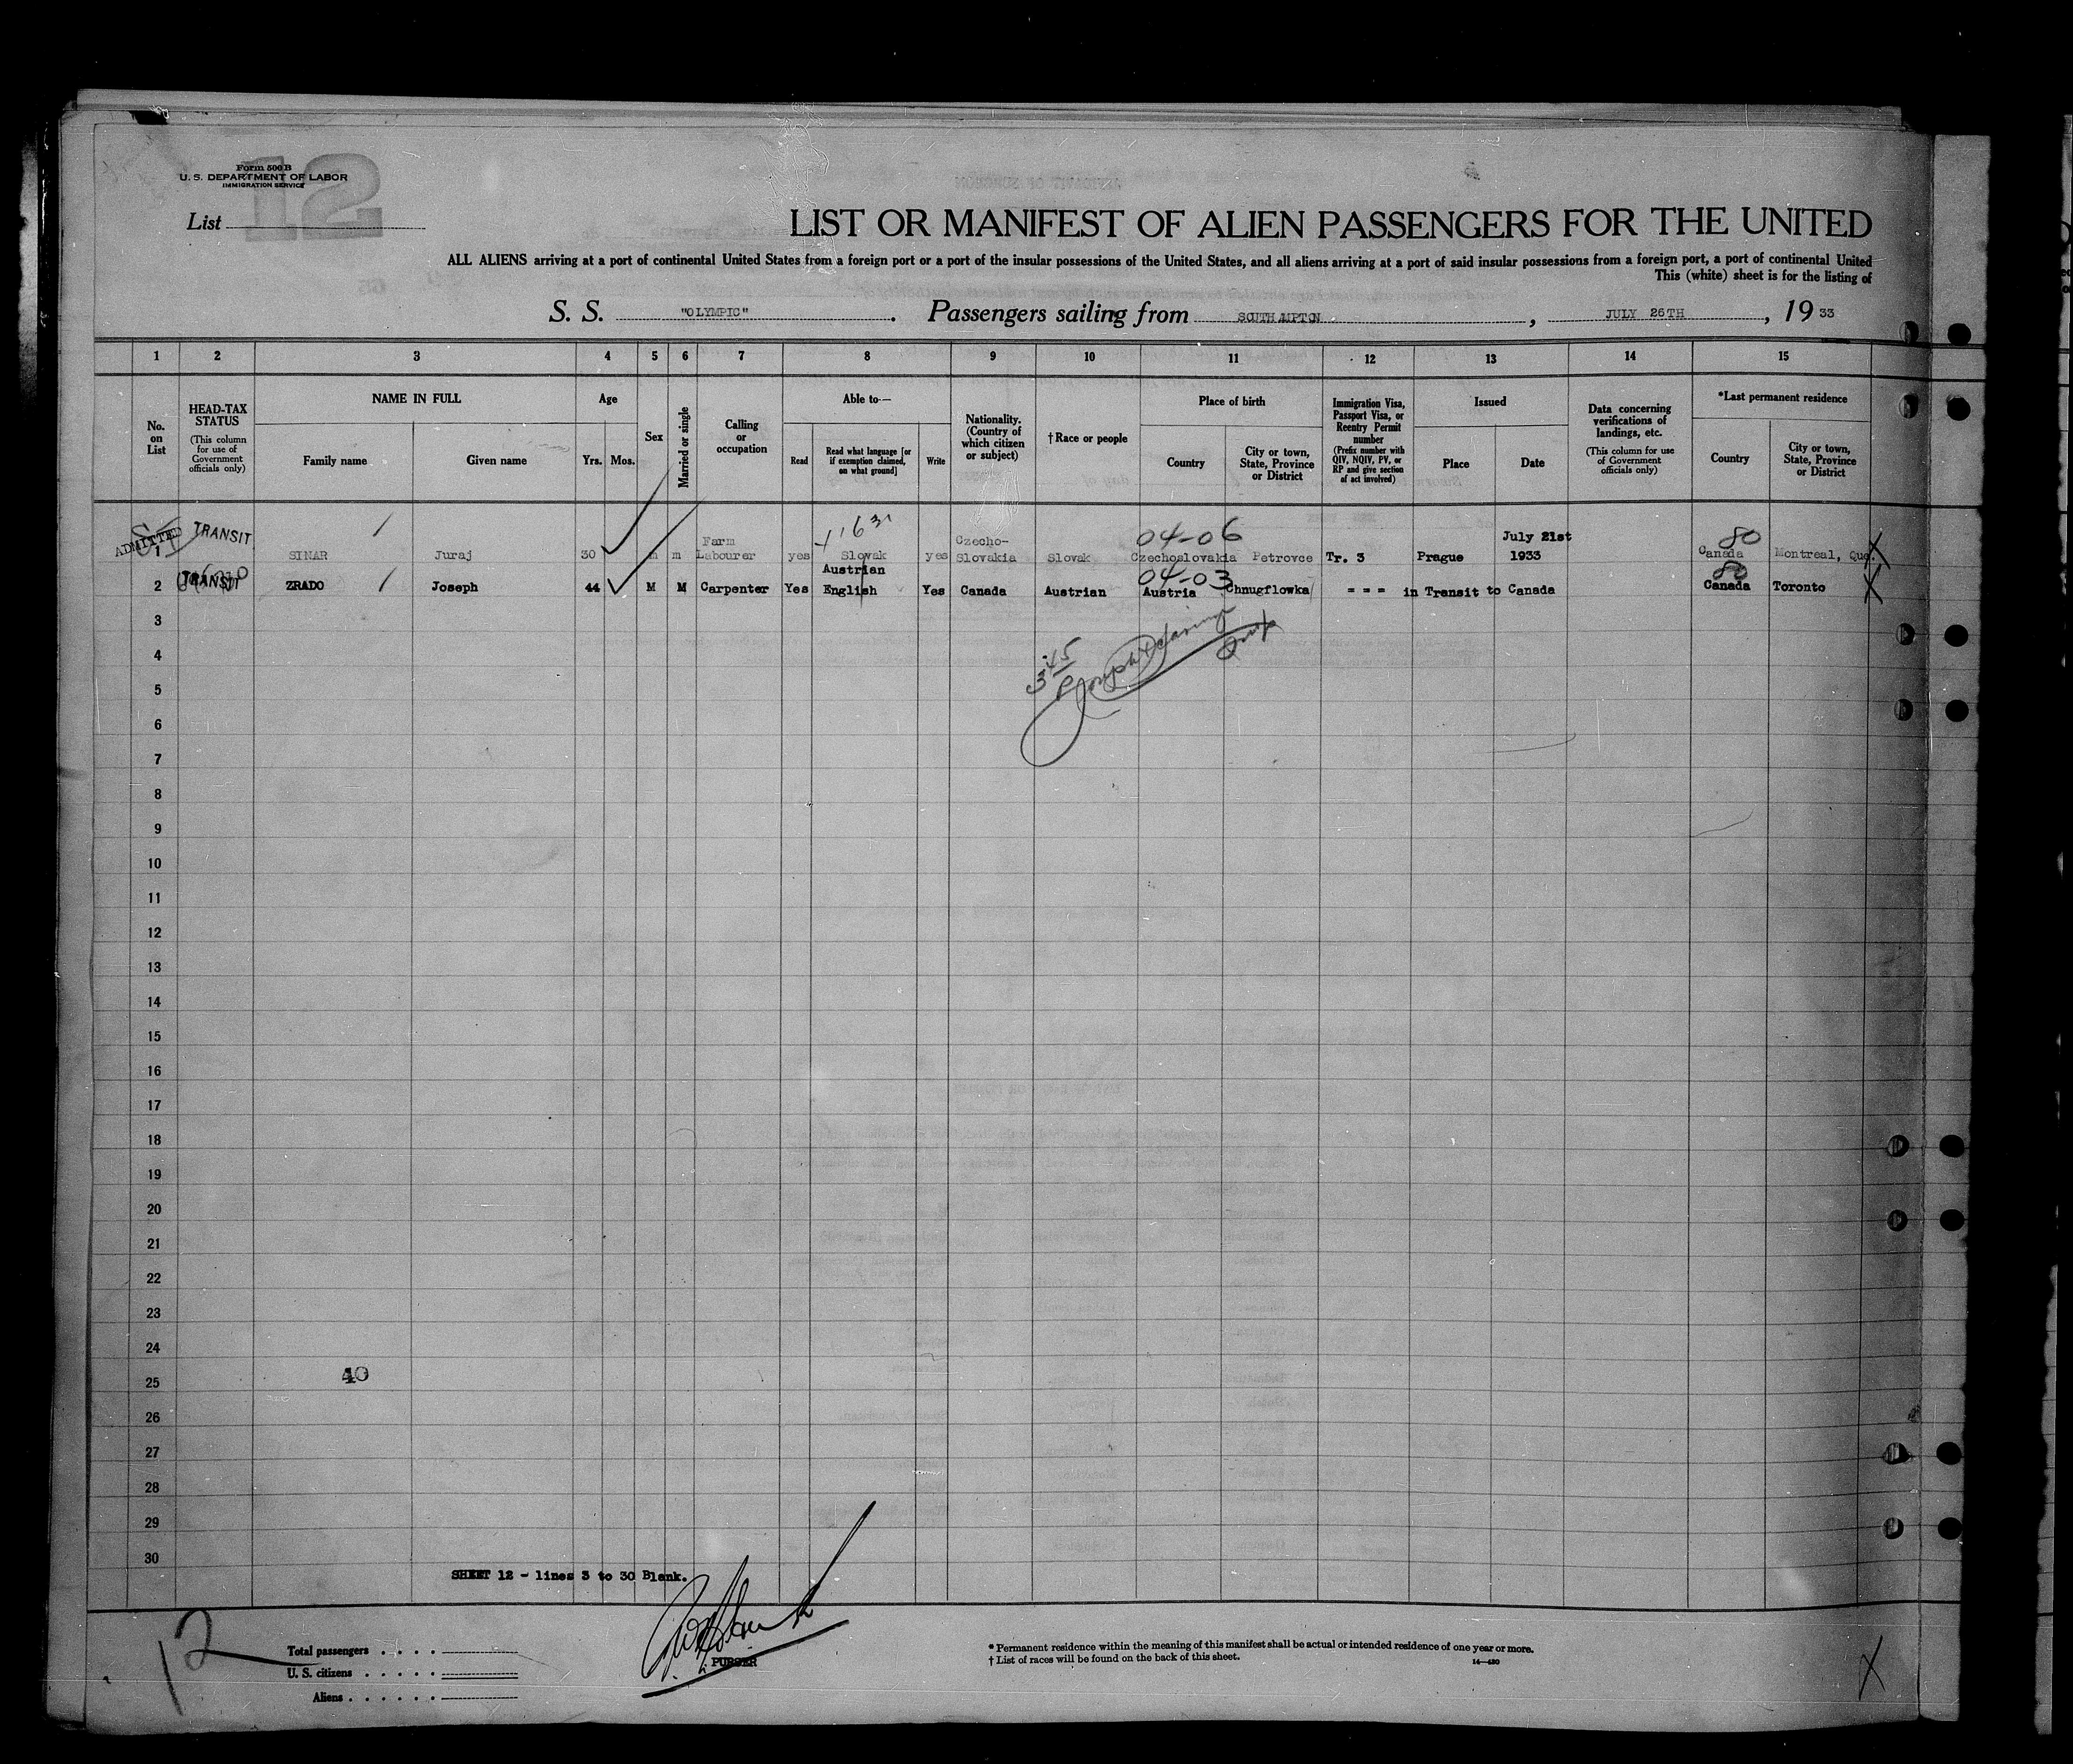 12
Form 500 B
U. S. DEPARTMENT OF LABOR
IMMIGRATION SERVICE
List
LIST OR MANIFEST OF ALIEN PASSENGERS FOR THE UNITED
ALL ALIENS arriving at a port of continental United States from a foreign port or a port of the insular possessions of the United States, and all aliens arriving at a port of said insular possessions from a foreign port, a port of continental United
This (white) sheet is for the listing of
S. S. "OLYMPIC". Passengers sailing from SOUTHAMPTON, JULY 26TH, 1933
1 2 3 4 5 6 7 8 9 10 11 12 13 14 15
No. on List
HEAD-TAX STATUS (This column for use of Government officials only)
NAME IN FULL
Family name Given name
Age
Yrs. Mos.
Sex
Married or single
Calling or occupation
Able to—
Read
Read what language [or if exemption claimed, on what ground]
Write
Nationality. (Country of which citizen or subject)
†Race or people
Place of birth
Country
City or town, State, Province or District
Immigration Visa, Passport Visa, or Reentry Permit number (Prefix number with QIV, NQIV, PV, or RP and give section of act involved)
Issued
Place Date
Data concerning verifications of landings, etc. (This column for use of Government officials only)
*Last permanent residence
Country
City or town, State, Province or District
ADMITTED TRANSIT 04-06 80
1 SINAR Juraj 30 m m Farm Labourer yes Slovak yes Czecho-Slovakia Slovak Czechoslovakia Petrovce Tr. 3 Prague July 21st 1933 Canada Montreal, Que.
TRANSIT 04-03 80
2 ZRADO Joseph 44 M M Carpenter Yes Austrian English Yes Canada Austrian Austria Chnugflowka = = = in Transit to Canada Canada Toronto
3
4
5
6
7
8
9
10
11
12
13
14
15
16
17
18
19
20
21
22
23
24
25 40
26
27
28
29
30
SHEET 12 - lines 3 to 30 Blank.
12
PURSER
Total passengers . . . .
U. S. citizens . . . . .
Aliens . . . . . .
* Permanent residence within the meaning of this manifest shall be actual or intended residence of one year or more.
† List of races will be found on the back of this sheet.
14—420